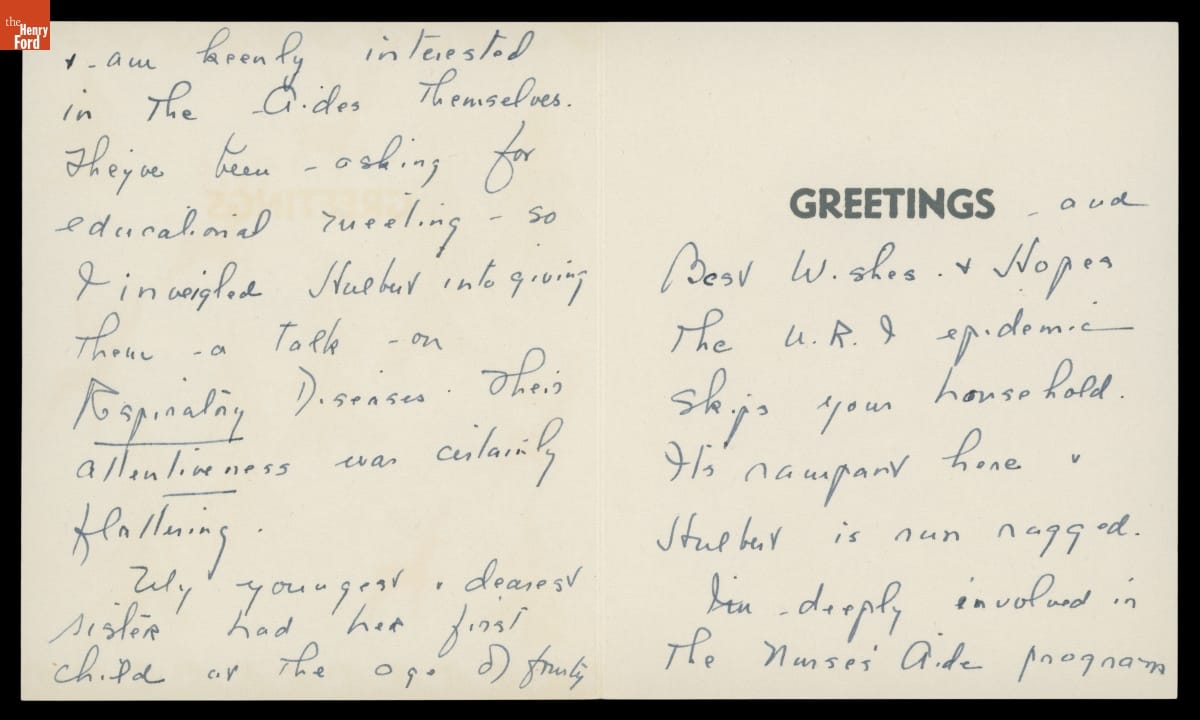 the
Henry
Ford
GREETINGS - and
Best Wishes. + Hopes
the U.R.I epidemic
skips your household.
It's rampant here +
Hulbert is run ragged.
I'm deeply involved in
the Nurse's Aide program
+ am keenly interested
in the Aides themselves.
They've been asking for
educational meeting - so
I inveigled Hulbert into giving
them a talk on
Respiratory Diseases. Their
attentiveness was certainly
flattering.
My youngest + dearest
sister had her first
child at the age of